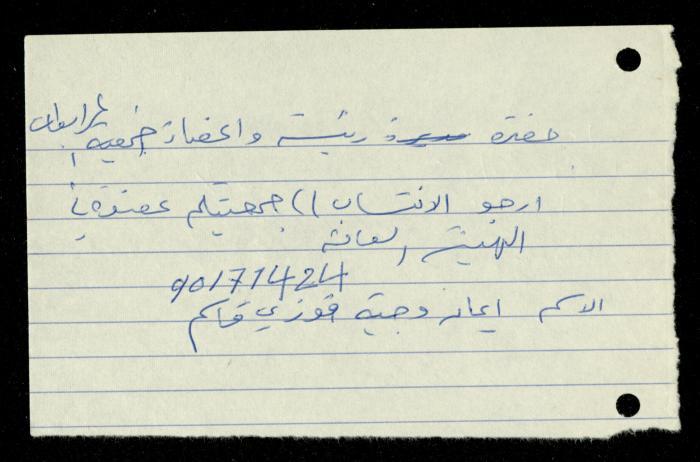 حضرة رئيسة واعضاء الجمعية المحترمات
ارجو الانتساب الى جمعيتكم عضوة في
الهيئة العامة
901771424
الاسم ايمان وجيه فوزي قاسم